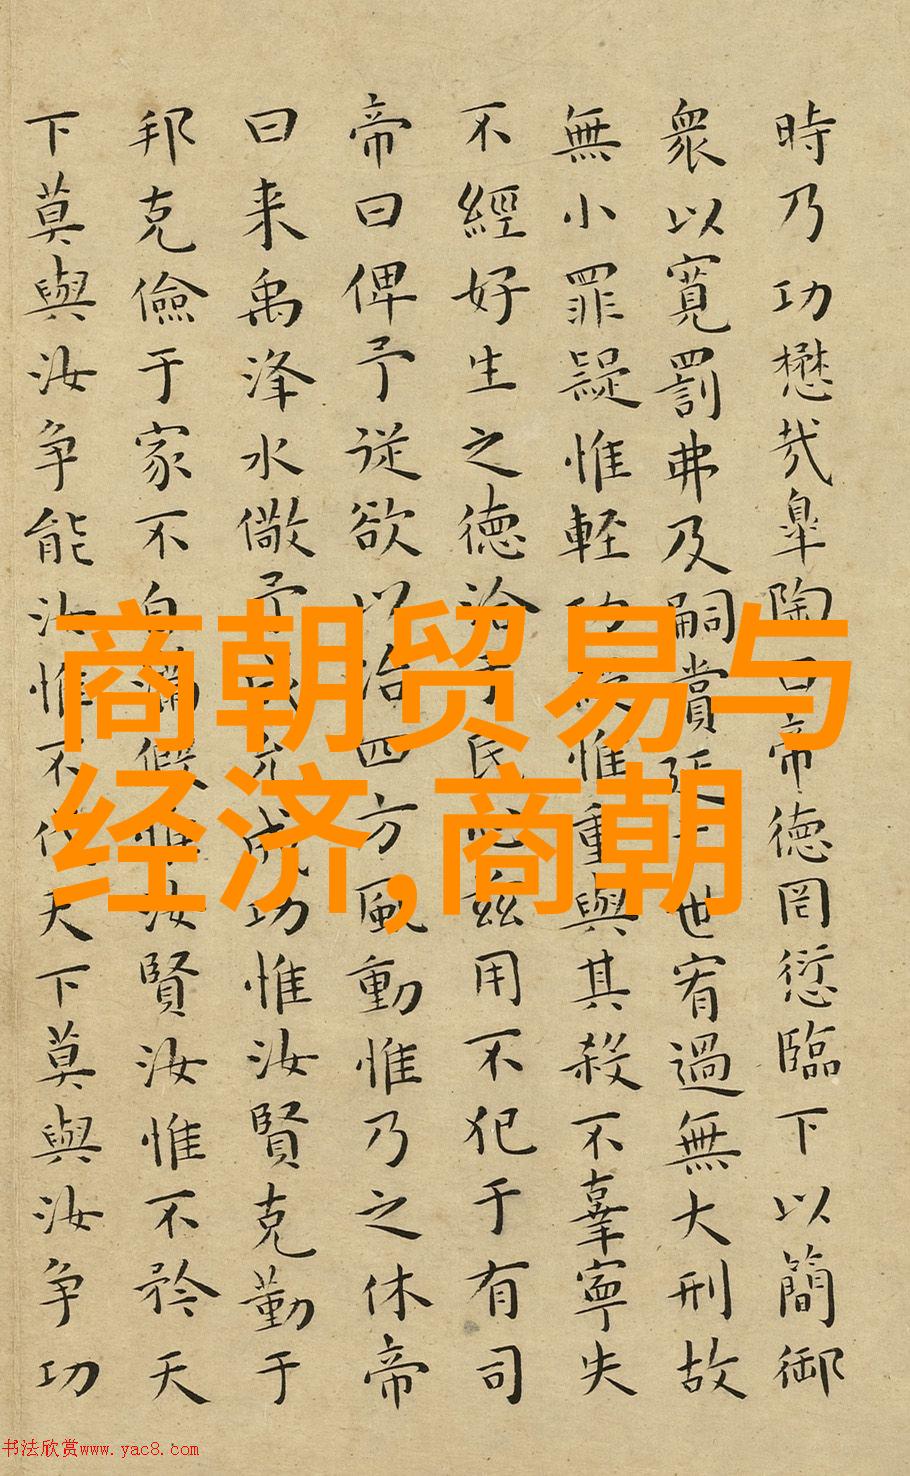 時乃功懋哉皐陶曰帝德罔愆臨下以簡御
衆以寬罰弗及嗣賞延于世宥過無大刑故
無小罪疑惟輕功疑惟重與其殺不辜寧失
不經好生之德洽于民心茲用不犯于有司
帝曰俾予從欲以治四方風動惟乃之休帝
曰来禹洚水儆予成允成功惟汝賢克勤于
邦克儉于家不自滿假惟汝賢汝惟不矜天
下莫與汝争能汝惟不伐天下莫與汝争功
商朝贸易与
经济,商朝
书法欣赏www.yac8.com